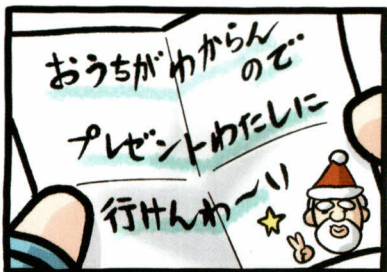 おうちがわからん
ので
プレゼントわたしに
行けんわ〜!!